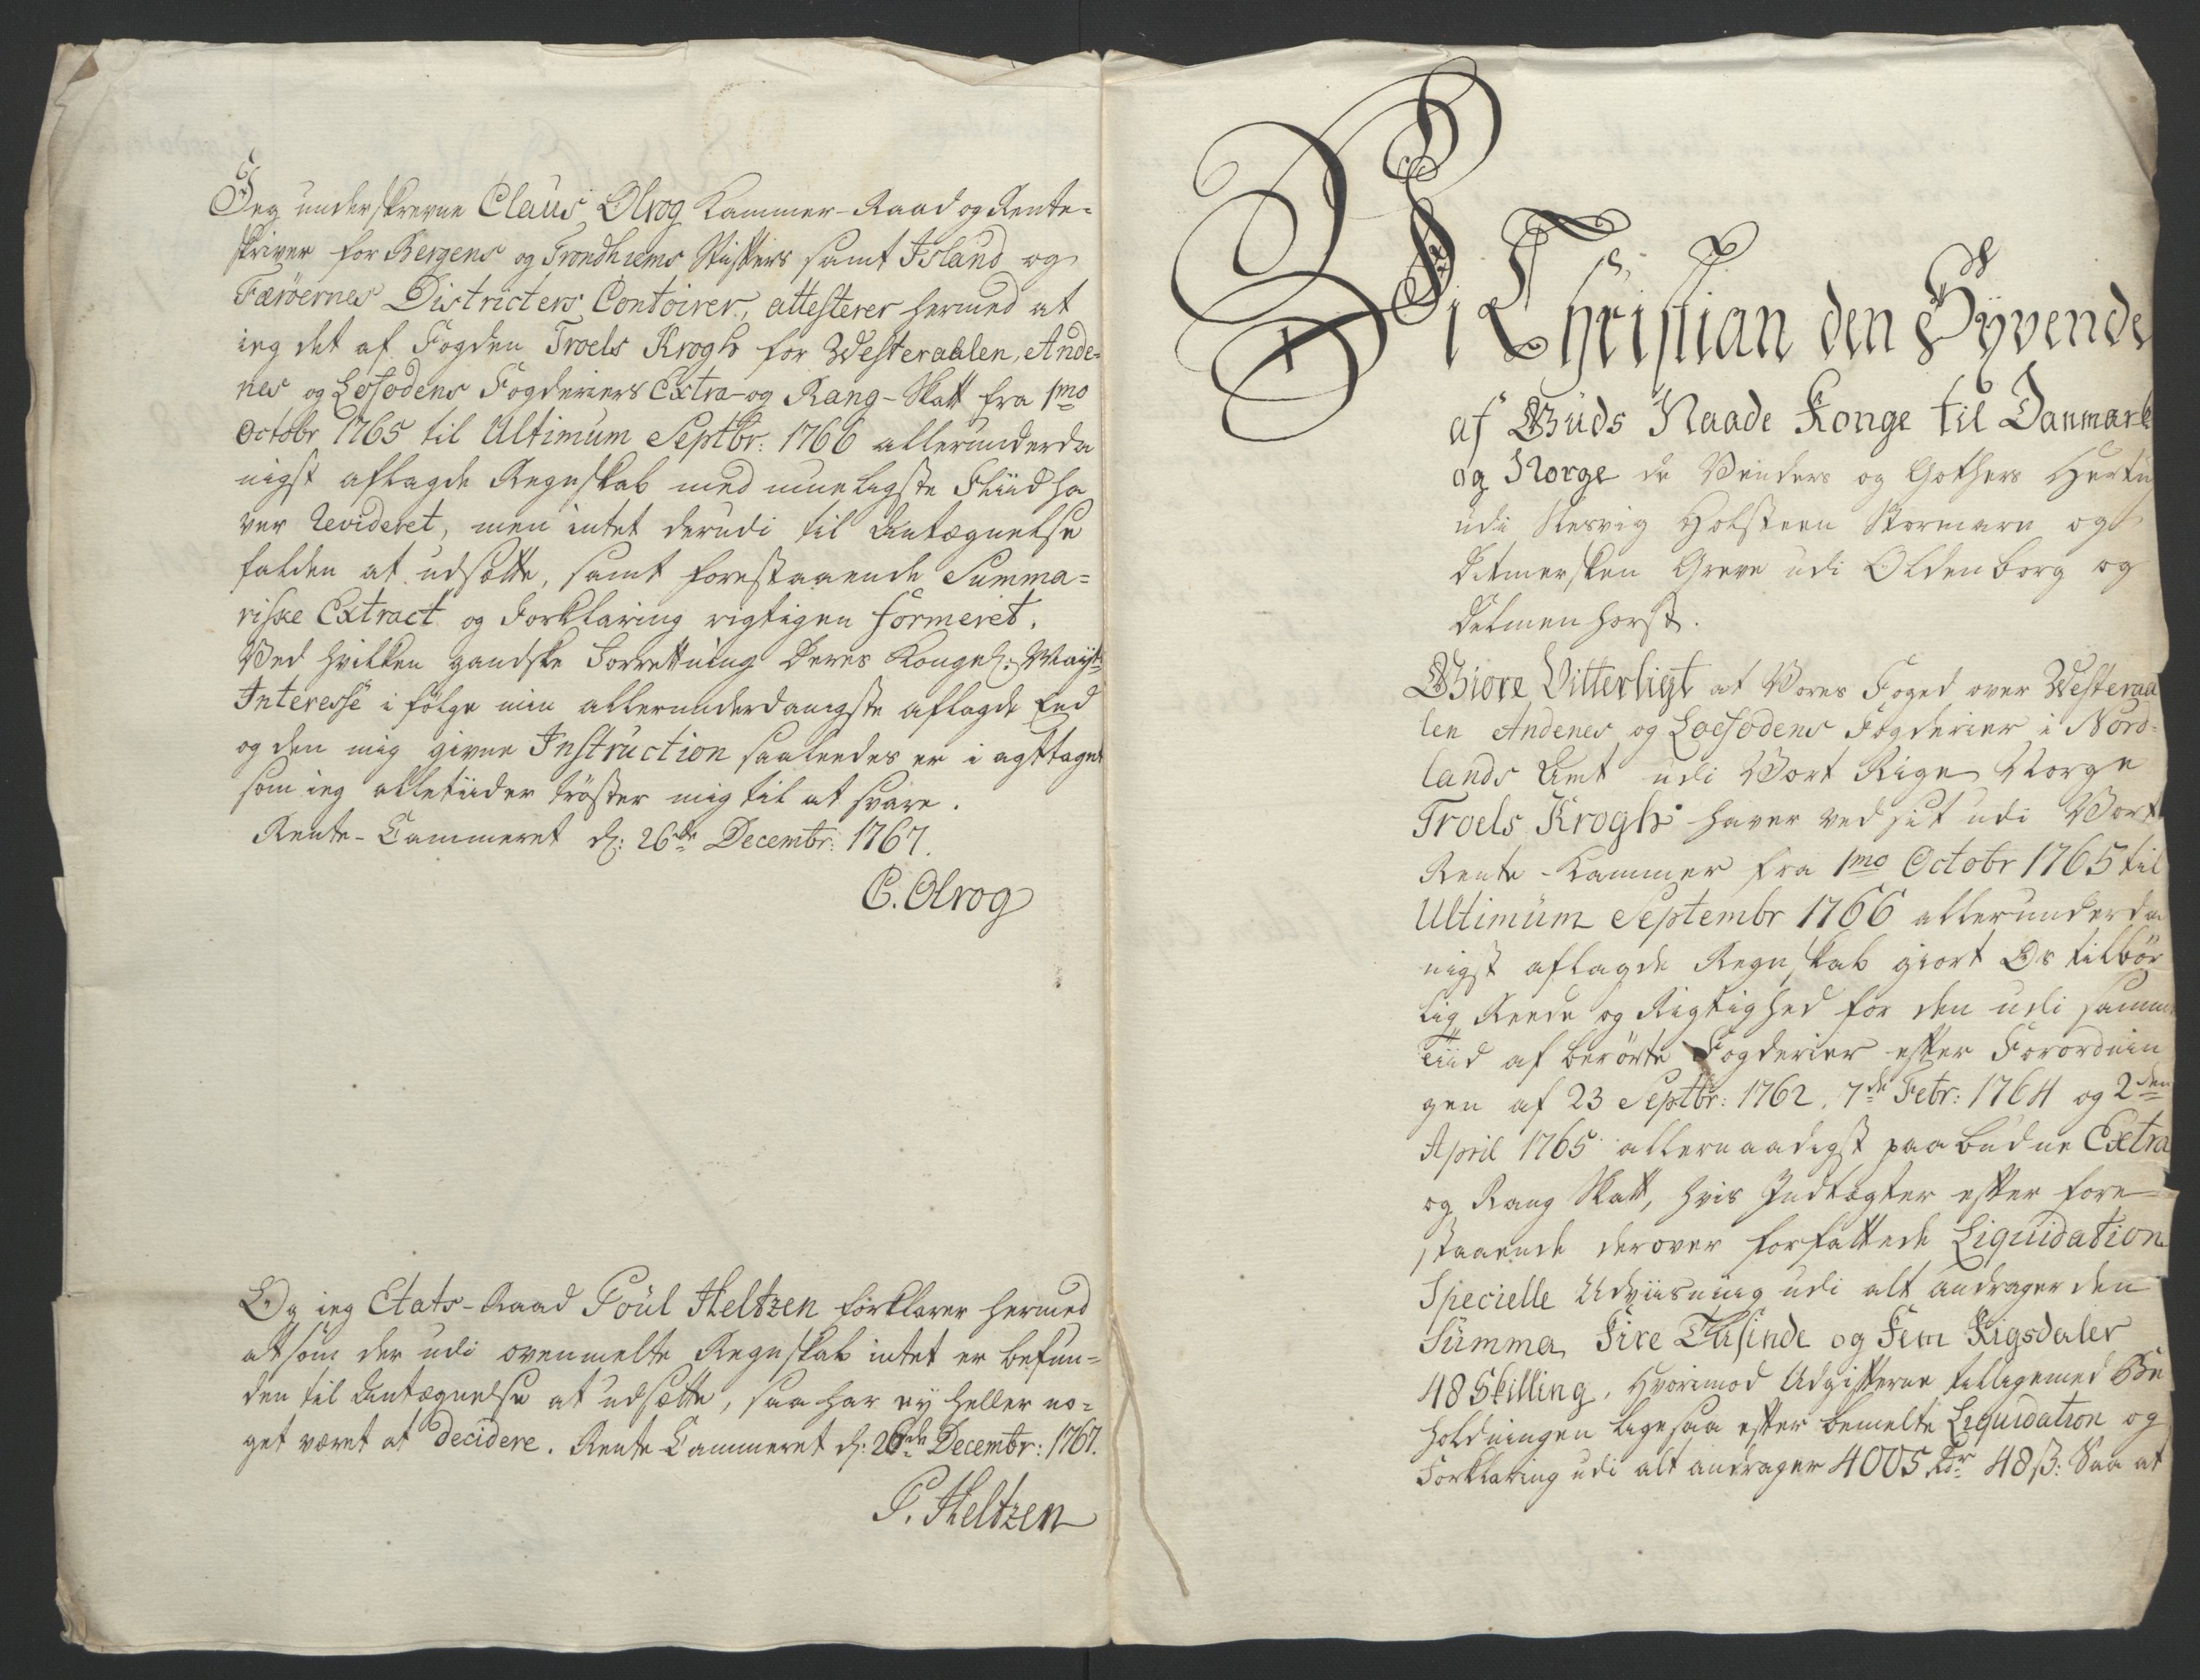 Jeg underskrevne Claus Olrog Kammer-Raad og Rente-
skriver for Bergens og Trondhiems Stifters samt Island og
Færöernes Districters Contoirer, attesterer hermed at
ieg det af Fogden Troels Krogh for Westeraalen, Ande-
nes og Lofodens Fogderiers Extra- og Rang-Skatt fra 1mo
Octobr 1765 til Ultimum Septbr: 1766 allerunderda
nigst aflagde Regnskab med mueligste Fliid ha
ver Revideret, men intet derudi til Antægnelse
falden at udsætte, samt forestaaende Summa-
riske Extract og Forklaring rigtigen formeret.
Ved hvilken gandske Forretning Deres Kongel: Mayts
Interesse i følge min allerunderdanigste aflagde Eed
og den mig givne Instruction saaleedes er i agttaget
som ieg alletiider trøster mig til at svare.
Rente-Cammeret d: 26de Decembr: 1767.
C. Olrog
Og ieg Etats-Raad Poül Heltzen forklarer hermed
at som der udi ovenmelte Regnskab intet er befun-
den til Antægnelse at udsætte, saa har ey heller no-
get været at decidere. Rente Cammeret d: 26de Decembr: 1767.
P. Heltzen
Vi Christian den Syvende
af Guds Naade Konge til Danmark
og Norge de Venders og Gothers Hertug
udi Slesvig Holsteen Stormarn og
Ditmersken Greve udi Oldenborg og
Delmenhorst.
Giore Vitterligt at Vores Foged over Westeraa
len Andenes og Loefodens Fogderier i Nord-
lands Amt udi Vort Rige Norge
Troels Krogh haver ved sit udi Vort
Rente-Kammer fra 1mo Octobr 1765 til
Ultimum Septembr 1766 allerunderda
nigst aflagde Regnskab giort Os tilbør
lig Reede og Rigtighed for den udi samme
Tiid af berørte Fogderier efter Forordnin
gen af 23 Septbr: 1762. 7de Febr: 1764 og 2den
April 1765 allernaadigst paabudne Extra
og Rang Skatt, hvis Indtægter efter fore-
staaende derover forfattede Liquidation
Specielle Udviisning udi alt andrager den
Summa Fire Tusinde og Fem Rigsdaler
48 Skilling. Hvorimod Udgifterne tilligemed Be
holdningen ligesaa efter bemelte Liquidation og
Forklaring udi alt andrager 4005 Rdr 48 ß: Saa at